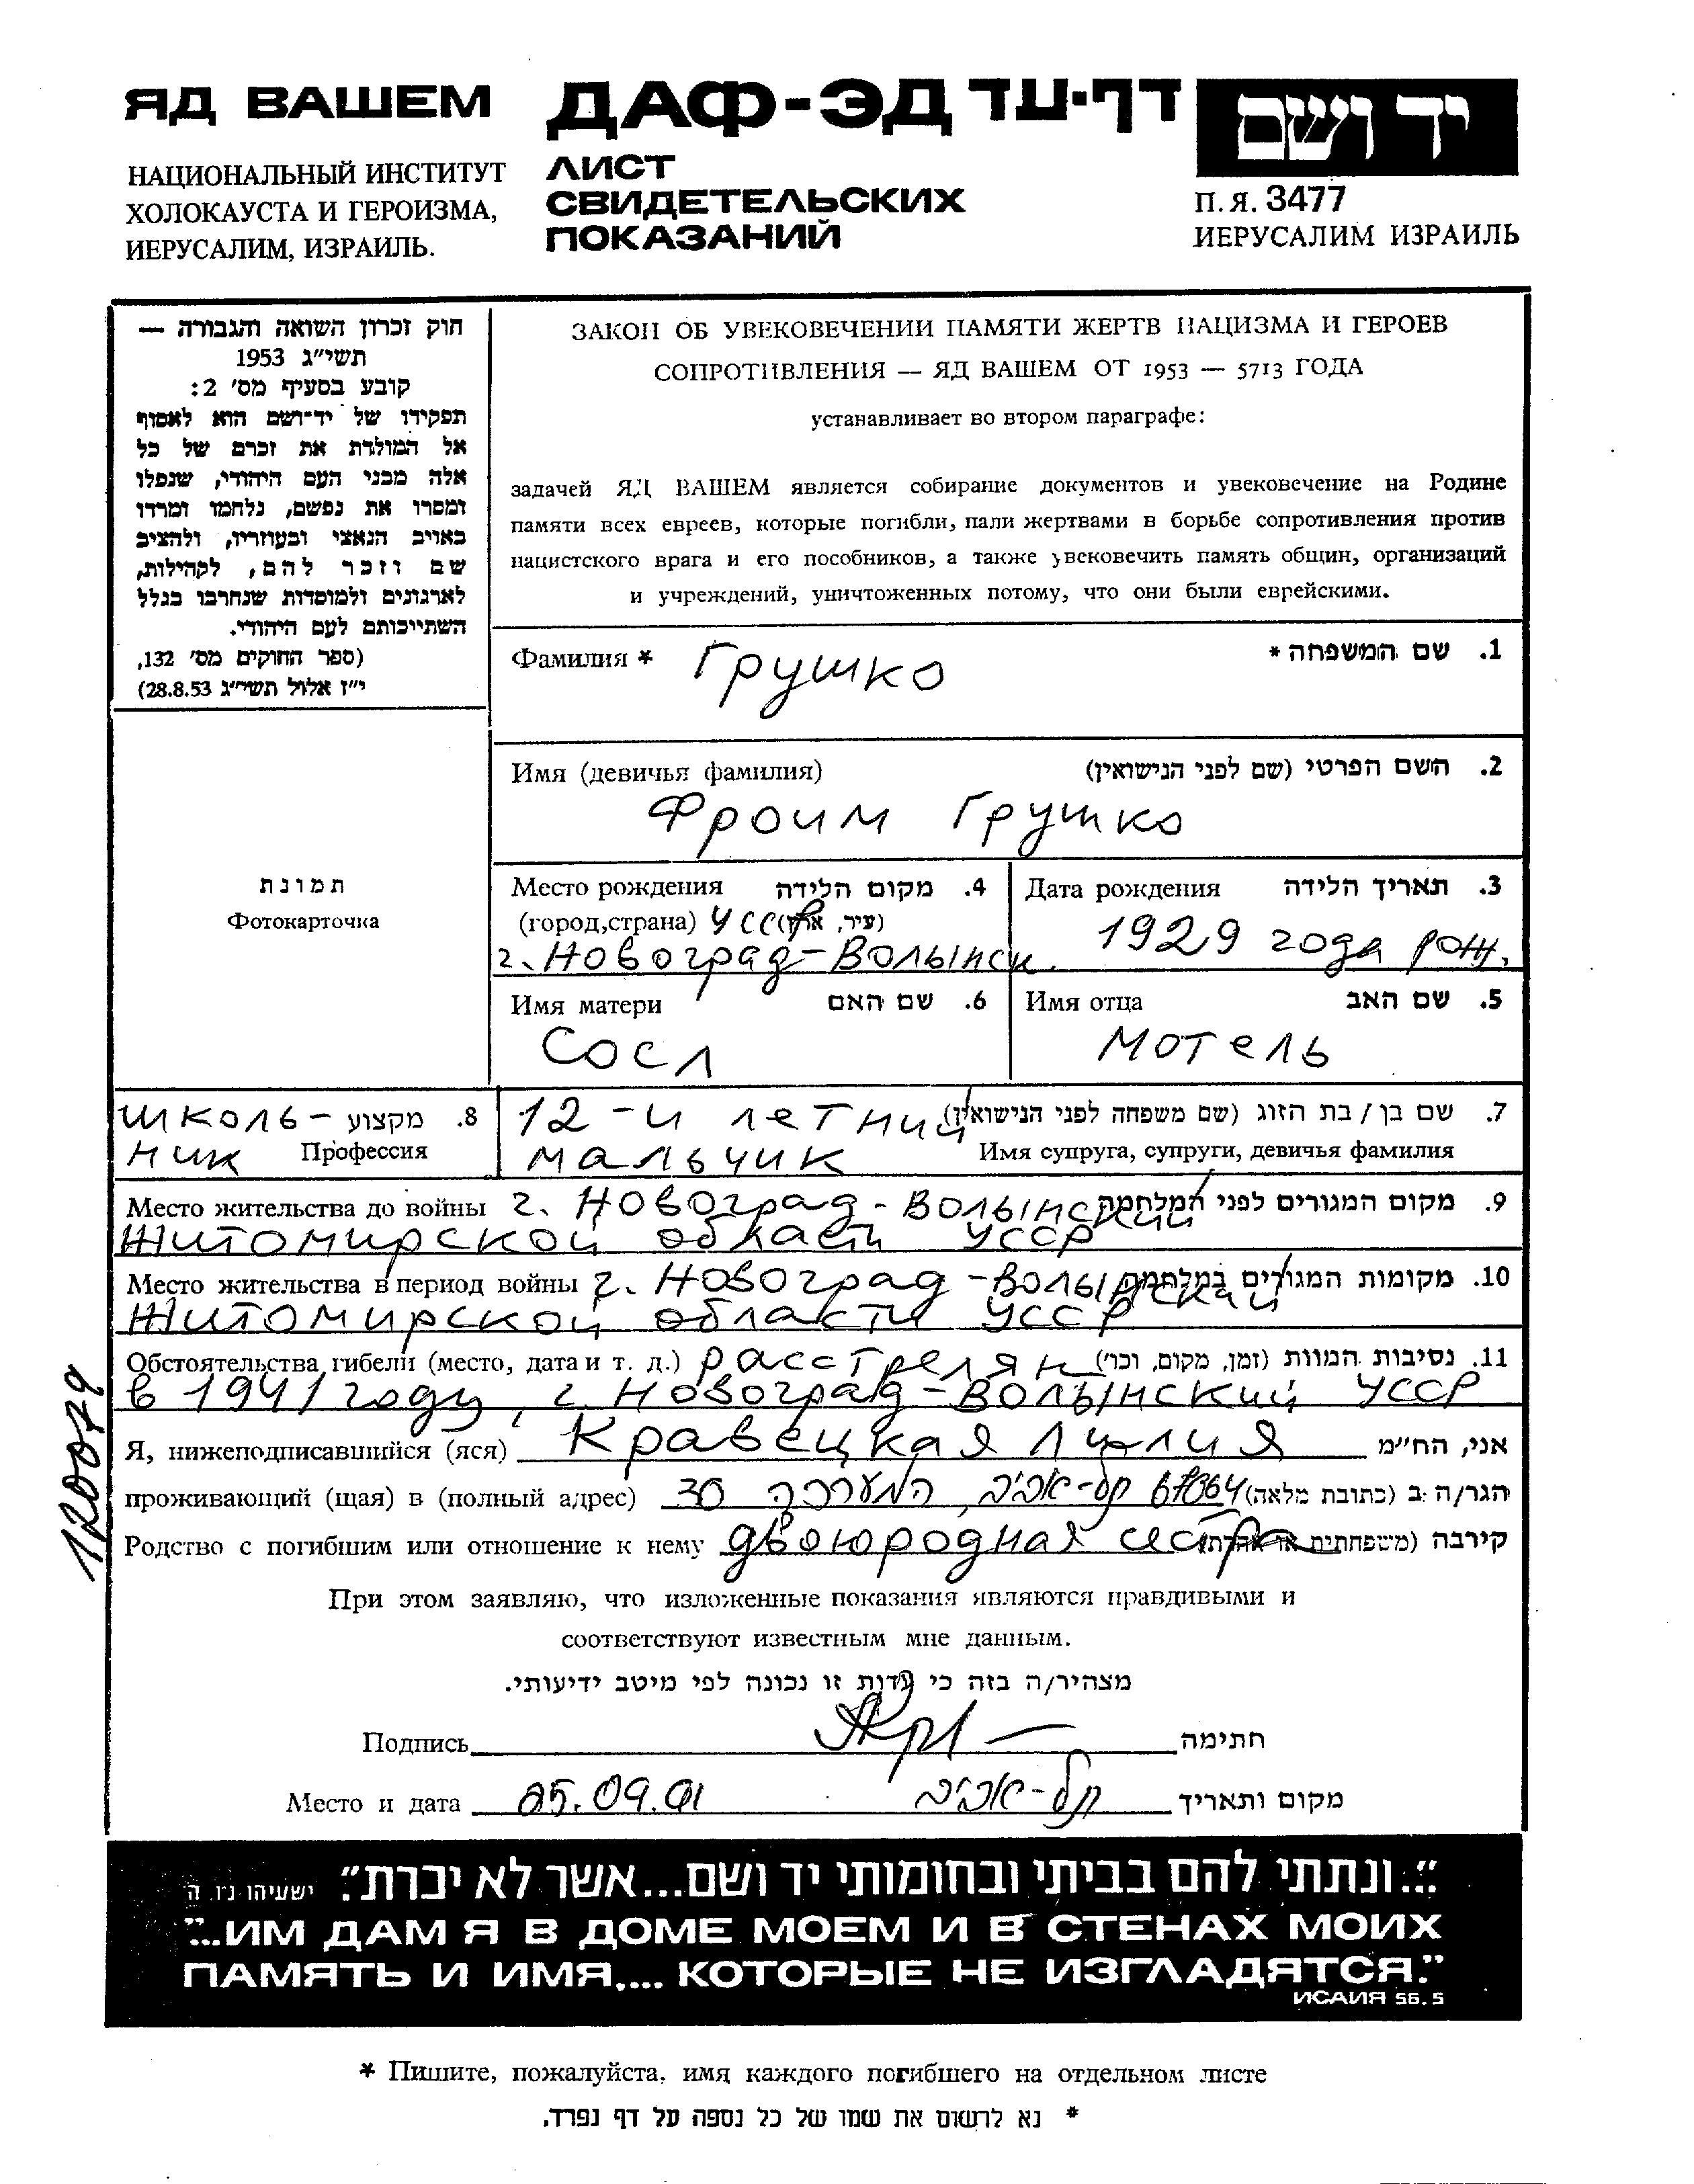 ЯД ВАШЕМ
НАЦИОНАЛЬНЫЙ ИНСТИТУТ
ХОЛОКАУСТА И ГЕРОИЗМА,
ИЕРУСАЛИМ, ИЗРАИЛЬ.
ДАФ-ЭД דף-עד
ЛИСТ
СВИДЕТЕЛЬСКИХ
ПОКАЗАНИЙ
יד ושם
П.Я. 3477
ИЕРУСАЛИМ ИЗРАИЛЬ
חוק זכרון השואה והגבורה —
תשי״ג 1953
קובע בסעיף מס׳ 2:
תפקידו של יד-ושם הוא לאסוף
אל המולדת את זכרם של כל
אלה מבני העם היהודי, שנפלו
ומסרו את נפשם, נלחמו ומרדו
באויב הנאצי ובעוזריו, ולהציב
שם וזכר להם, לקהילות,
לארגונים ולמוסדות שנחרבו בגלל
השתייכותם לעם היהודי.
(ספר החוקים מס׳ 132,
י״ז אלול תשי״ג 28.8.53)
ЗАКОН ОБ УВЕКОВЕЧЕНИИ ПАМЯТИ ЖЕРТВ НАЦИЗМА И ГЕРОЕВ
СОПРОТИВЛЕНИЯ — ЯД ВАШЕМ ОТ 1953 — 5713 ГОДА
устанавливает во втором параграфе:
задачей ЯД ВАШЕМ является собирание документов и увековечение на Родине
памяти всех евреев, которые погибли, пали жертвами в борьбе сопротивления против
нацистского врага и его пособников, а также увековечить память общин, организаций
и учреждений, уничтоженных потому, что они были еврейскими.
Фамилия * Грушко 1. שם המשפחה *
Имя (девичья фамилия) 2. השם הפרטי (שם לפני הנישואין)
Фроим Грушко
תמונת
Фотокарточка
Место рождения 4. מקום הלידה
(город,страна) УССР (עיר, ארץ)
г. Новоград-Волынск.
Дата рождения 3. תאריך הלידה
1929 года рож.
Имя матери 6. שם האם
Сосл
Имя отца 5. שם האב
Мотель
школь- 8. מקצוע
ник Профессия
12-и летний 7. שם בן / בת הזוג (שם משפחה לפני הנישואין)
мальчик Имя супруга, супруги, девичья фамилия
Место жительства до войны г. Новоград-Волынский 9. מקום המגורים לפני המלחמה
Житомирской области УССР
Место жительства в период войны г. Новоград-Волынский 10. מקומות המגורים במלחמה
Житомирской области УССР
Обстоятельства гибели (место, дата и т. д.) расстрелян 11. נסיבות המוות (זמן, מקום, וכו׳)
в 1941 году, г. Новоград-Волынский УССР
Я, нижеподписавшийся (яся) Кравецкая Лилия אני, הח״מ
проживающий (щая) в (полный адрес) 30 המערכה, תל-אביב 67064 הגר/ה ב (כתובת מלאה)
Родство с погибшим или отношение к нему двоюродная сестра קירבה (משפחתית או אחרת)
При этом заявляю, что изложенные показания являются правдивыми и
соответствуют известным мне данным.
מצהיר/ה בזה כי עדות זו נכונה לפי מיטב ידיעותי.
Подпись חתימה
Место и дата 25.09.91 תל-אביב מקום ותאריך
120079
״...ונתתי להם בביתי ובחומותי יד ושם...אשר לא יכרת.״ ישעיהו נ״ו. ה
"...ИМ ДАМ Я В ДОМЕ МОЕМ И В СТЕНАХ МОИХ
ПАМЯТЬ И ИМЯ,... КОТОРЫЕ НЕ ИЗГЛАДЯТСЯ."
ИСАИЯ 56. 5
* Пишите, пожалуйста, имя каждого погибшего на отдельном листе
* נא לרשום את שמו של כל נספה על דף נפרד.